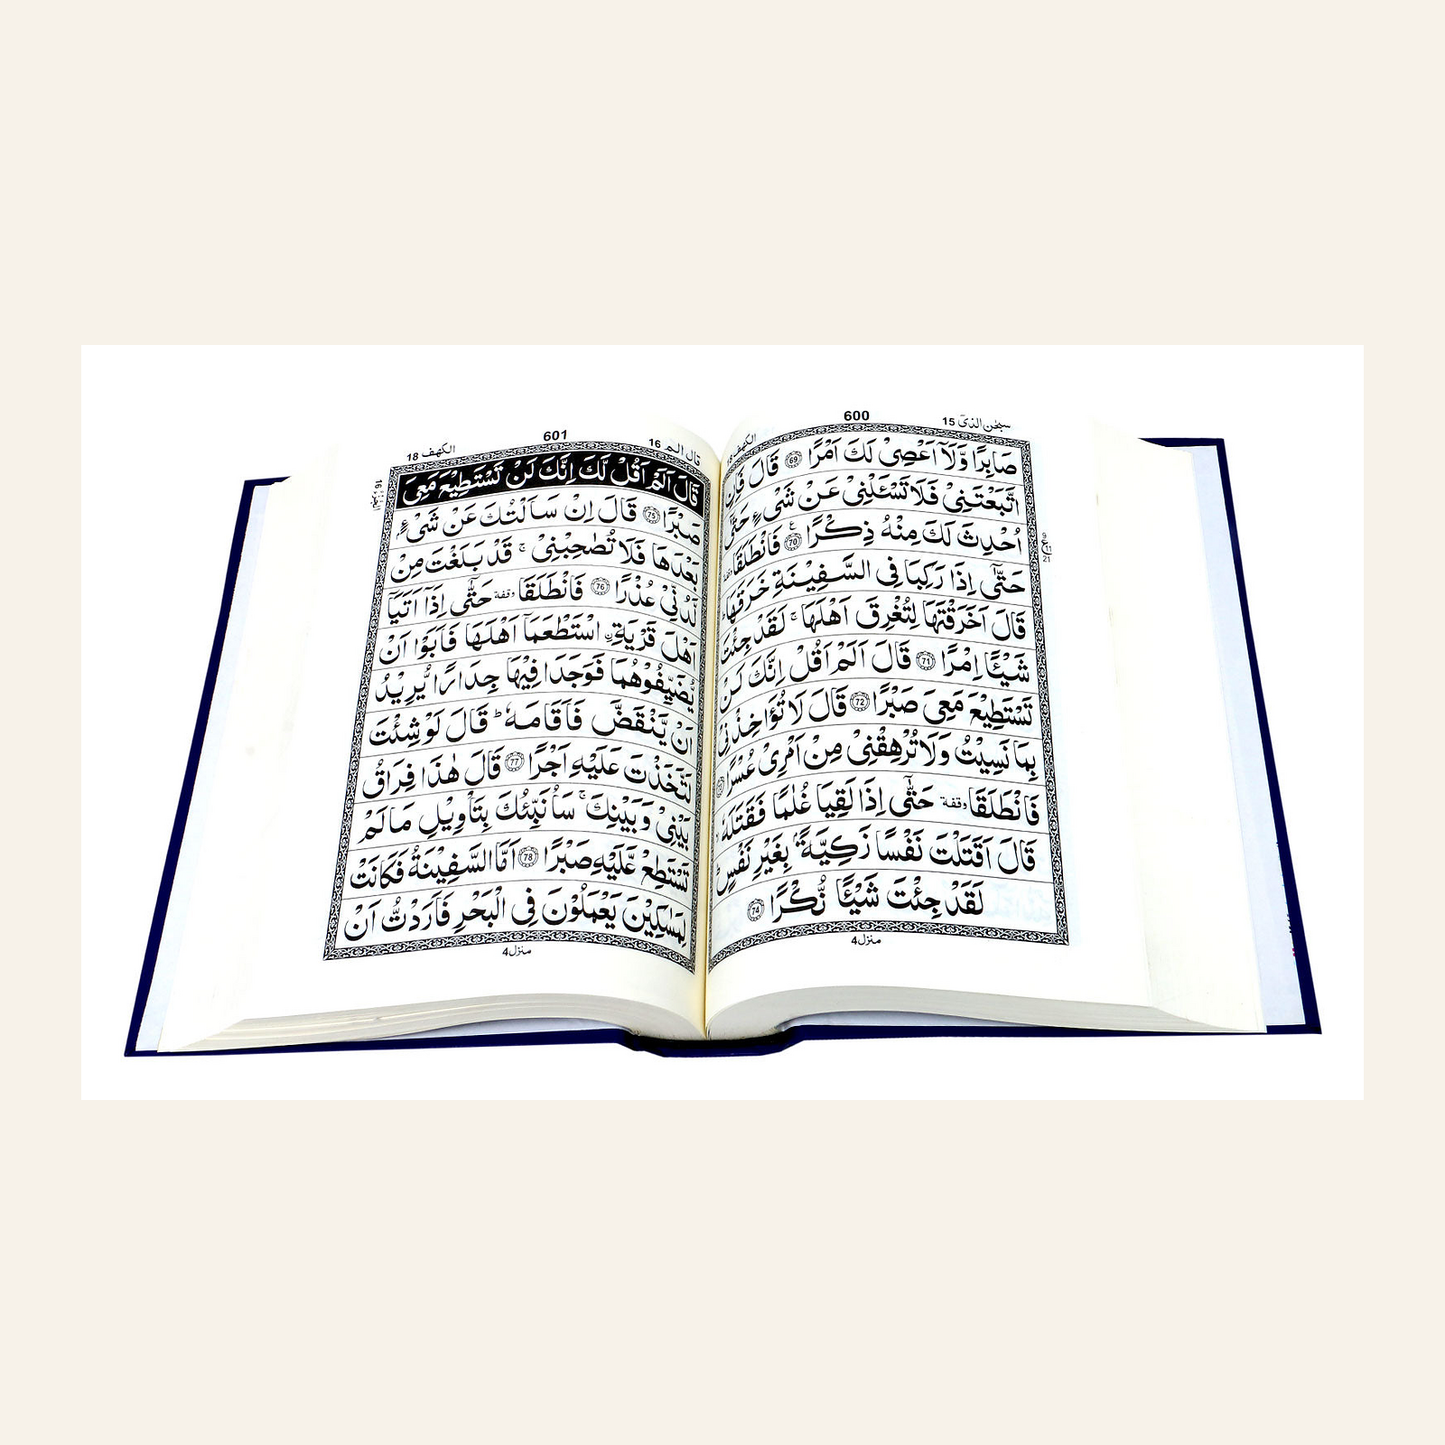 سبحٰن الذیٓ 15 600 الكهف
صَابِرًا وَّلَاۤ اَعْصِیْ لَكَ اَمْرًا 69 قَالَ فَاِنِ
اتَّبَعْتَنِیْ فَلَا تَسْـَٔلْنِیْ عَنْ شَیْءٍ حَتّٰۤی
اُحْدِثَ لَكَ مِنْهُ ذِكْرًا 70 فَانْطَلَقَا
حَتّٰۤی اِذَا رَكِبَا فِی السَّفِیْنَةِ خَرَقَهَا ؕ
قَالَ اَخَرَقْتَهَا لِتُغْرِقَ اَهْلَهَا ۚ لَقَدْ جِئْتَ
شَیْـًٔا اِمْرًا 71 قَالَ اَلَمْ اَقُلْ اِنَّكَ لَنْ
تَسْتَطِیْعَ مَعِیَ صَبْرًا 72 قَالَ لَا تُؤَاخِذْنِیْ
بِمَا نَسِیْتُ وَلَا تُرْهِقْنِیْ مِنْ اَمْرِیْ عُسْرًا
فَانْطَلَقَا وقفة حَتّٰۤی اِذَا لَقِیَا غُلٰمًا فَقَتَلَهٗ
قَالَ اَقَتَلْتَ نَفْسًا زَكِیَّةًۢ بِغَیْرِ نَفْسٍ ؕ
لَقَدْ جِئْتَ شَیْـًٔا نُّكْرًا 74
منزل 4
قال الم 16 601 الكهف 18
قَالَ اَلَمْ اَقُلْ لَّكَ اِنَّكَ لَنْ تَسْتَطِیْعَ مَعِیَ
صَبْرًا 75 قَالَ اِنْ سَاَلْتُكَ عَنْ شَیْءٍۭ
بَعْدَهَا فَلَا تُصٰحِبْنِیْ ۚ قَدْ بَلَغْتَ مِنْ
لَّدُنِّیْ عُذْرًا 76 فَانْطَلَقَا وقفة حَتّٰۤی اِذَاۤ اَتَیَاۤ
اَهْلَ قَرْیَةِ ِ۟اسْتَطْعَمَاۤ اَهْلَهَا فَاَبَوْا اَنْ
یُّضَیِّفُوْهُمَا فَوَجَدَا فِیْهَا جِدَارًا یُّرِیْدُ
اَنْ یَّنْقَضَّ فَاَقَامَهٗ ؕ قَالَ لَوْ شِئْتَ
لَتَّخَذْتَ عَلَیْهِ اَجْرًا 77 قَالَ هٰذَا فِرَاقُ
بَیْنِیْ وَبَیْنِكَ ۚ سَاُنَبِّئُكَ بِتَاْوِیْلِ مَا لَمْ
تَسْتَطِعْ عَّلَیْهِ صَبْرًا 78 اَمَّا السَّفِیْنَةُ فَكَانَتْ
لِمَسٰكِیْنَ یَعْمَلُوْنَ فِی الْبَحْرِ فَاَرَدْتُّ اَنْ
منزل 4